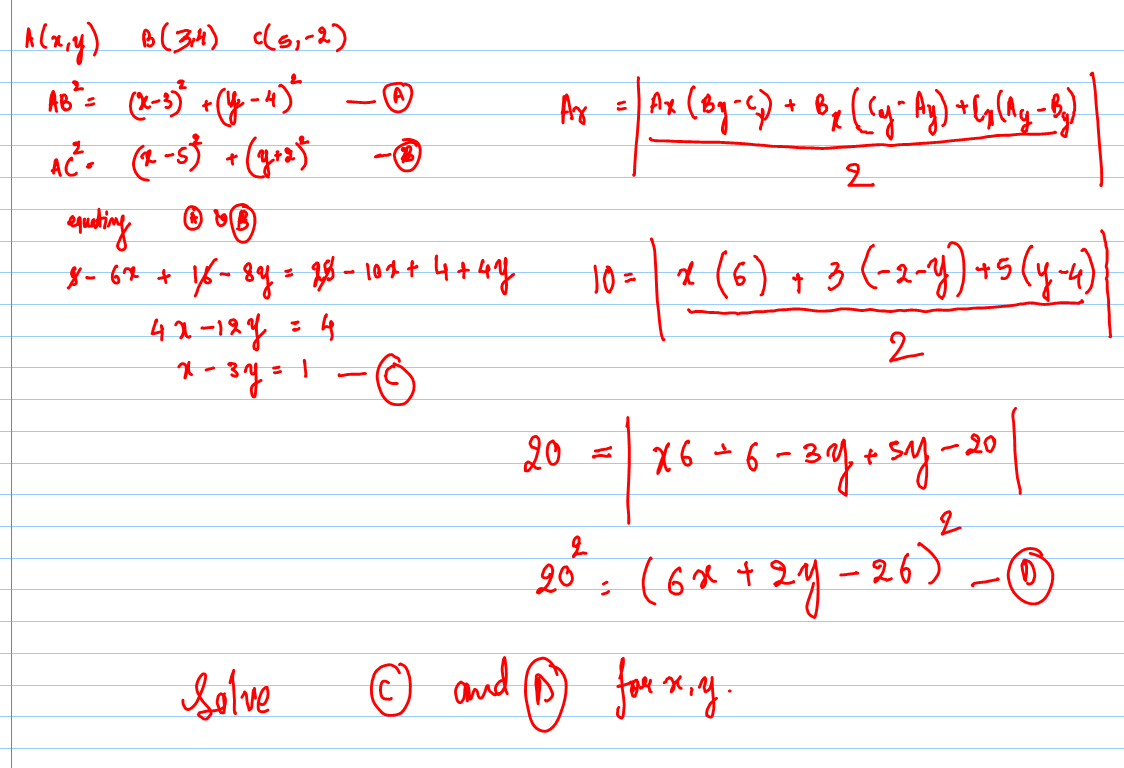 A(x,y) B(3,4) C(5,-2)
AB² = (x-3)² + (y-4)² — Ⓐ
AC² = (x-5)² + (y+2)² — Ⓑ
equating Ⓐ & Ⓑ
9 - 6x + 16 - 8y = 25 - 10x + 4 + 4y
4x - 12y = 4
x - 3y = 1 — Ⓒ
Ar = | Ax (By - Cy) + Bx (Cy - Ay) + Cx (Ay - By) |
2
10 = | x (6) + 3 (-2-y) + 5 (y-4) |
2
20 = | x6 - 6 - 3y + 5y - 20 |
20² = (6x + 2y - 26)² — Ⓓ
Solve Ⓒ and Ⓓ for x, y.